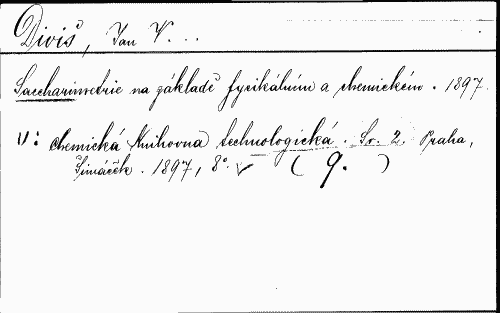 Diviš, Jan V...
Saccharimetrie na základě fysikálním a chemickém. 1897.
V: Chemická knihovna technologická. Sv. 2. Praha,
Šimáček. 1897, 8° (9.)